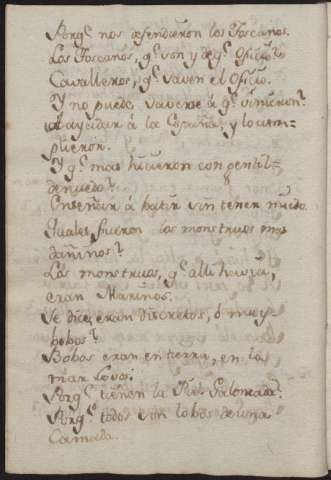 Porq.e nos defendieron los Toscanos.
Los Toscanos, q.e son y de q.e Oficio?
Cavalleros, q.e saven el Oficio.
Y no puede saverse á q.e vinieron?
A ayudar á la España, y lo cum=
plieron.
Y q.e mas hicieron con gentil
denuedo?
Enseñar á batir sin tener miedo.
Quales fueron los monstruos mas
dañinos?
Los monstruos, q.e alli havia,
eran Marinos.
Se dice, eran discretos, ó muy
bobos?
Bobos eran en tierra, en la
mar Lovos.
Porq.e tienen la Piel
Porq.e todos son lobos de una
Camada.